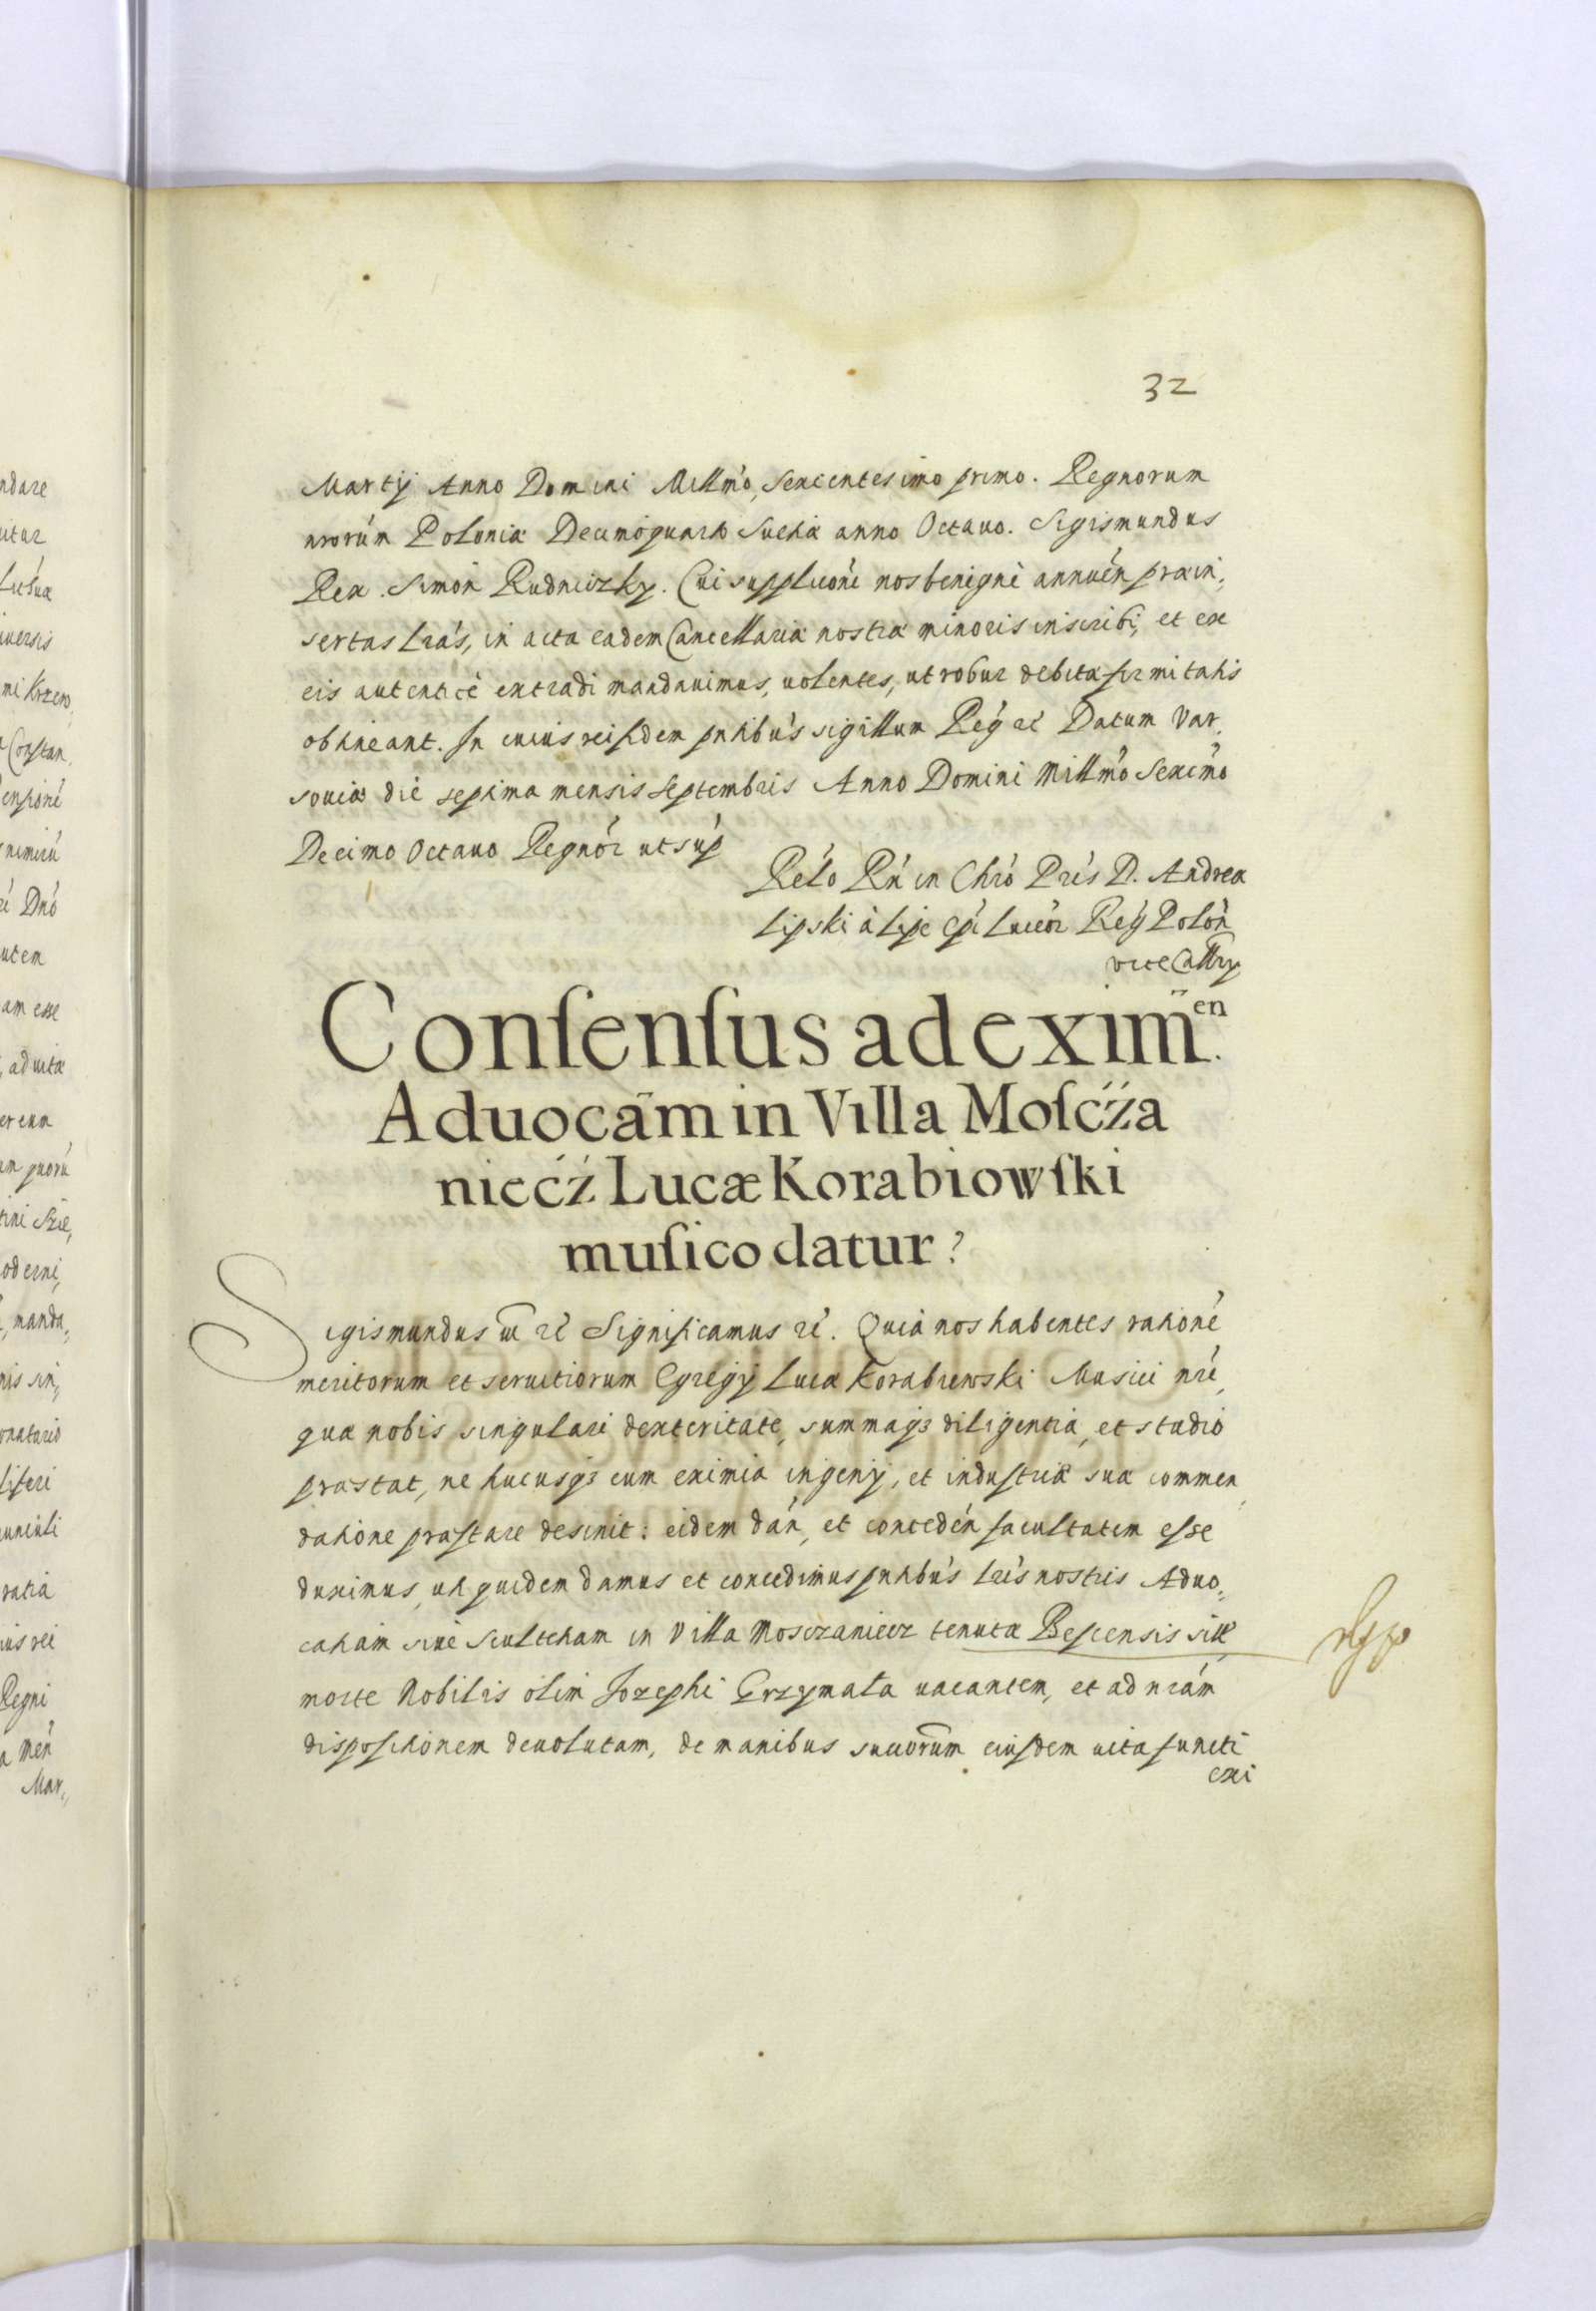 32
Martij Anno Domini Millmo, Sexcentesimo primo. Regnorum
nrorum Poloniæ Decimoquarto Sueciæ anno Octauo. Sigismundus
Rex. Simon Rudniczky. Cui suppliconi nos benignè annuen præin,
sertas Lras, in acta eadem Cancellariæ nostræ minoris inscribi, et ex
eis autenticè extradi mandauimus, uolentes, ut robur debitæ firmitatis
obtineant. In cuius rei fidem pntibus sigillum Reg et Datum Var,
souiæ die septima mensis Septembris Anno Domini Millmo Sexcmo
Decimo Octauo Regnor ut sup
Relo Rn in Chro Pris D. Andreæ
Lipski à Lipe Epi Luceor Reg Polon
viceCallry
Conſenſus ad exim̃en.
Aduocãm in Villa Moſcźa
niećź Lucæ Korabiowſki
muſico datur?
Sigismundus etc Significamus etc. Quia nos habentes rationé
meritorum et seruitiorum Egregij Lucæ Korabiewski Musici nri,
quæ nobis singulari dexteritate, summaq3 diligentia, et studio
præstat, ne hucusq3 cum eximia ingenij, et industriæ suæ commen,
datione præstare desinit: eidem dan, et conceden facultatem esse
duximus, uti quidem damus et concedimus pntibus Lris nostris Aduo,
catiam siue Scultetiam in Villa Mosczaniecz tenutæ
morte Nobilis olim Jozephi Grzymala uacantem, et ad nram
dispositionem deuolutam, de manibus succorum eiusdem uita functi
exi
ndare
itur
iuersis
mi Krzew,
Constan,
Dno
utem
am esse
, ad uitæ
er eum
m quoru
oderni,
, manda,
ratia
ius rei
Regni
Men
Mar,,